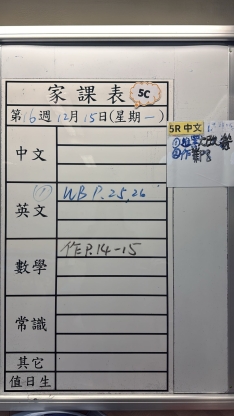 家課表 5C
第16週12月15日(星期一)
中文
英文 (1) WB P.25,26
數學 作E P.14-15
常識
其它
值日生
5R 中文
②作業P8